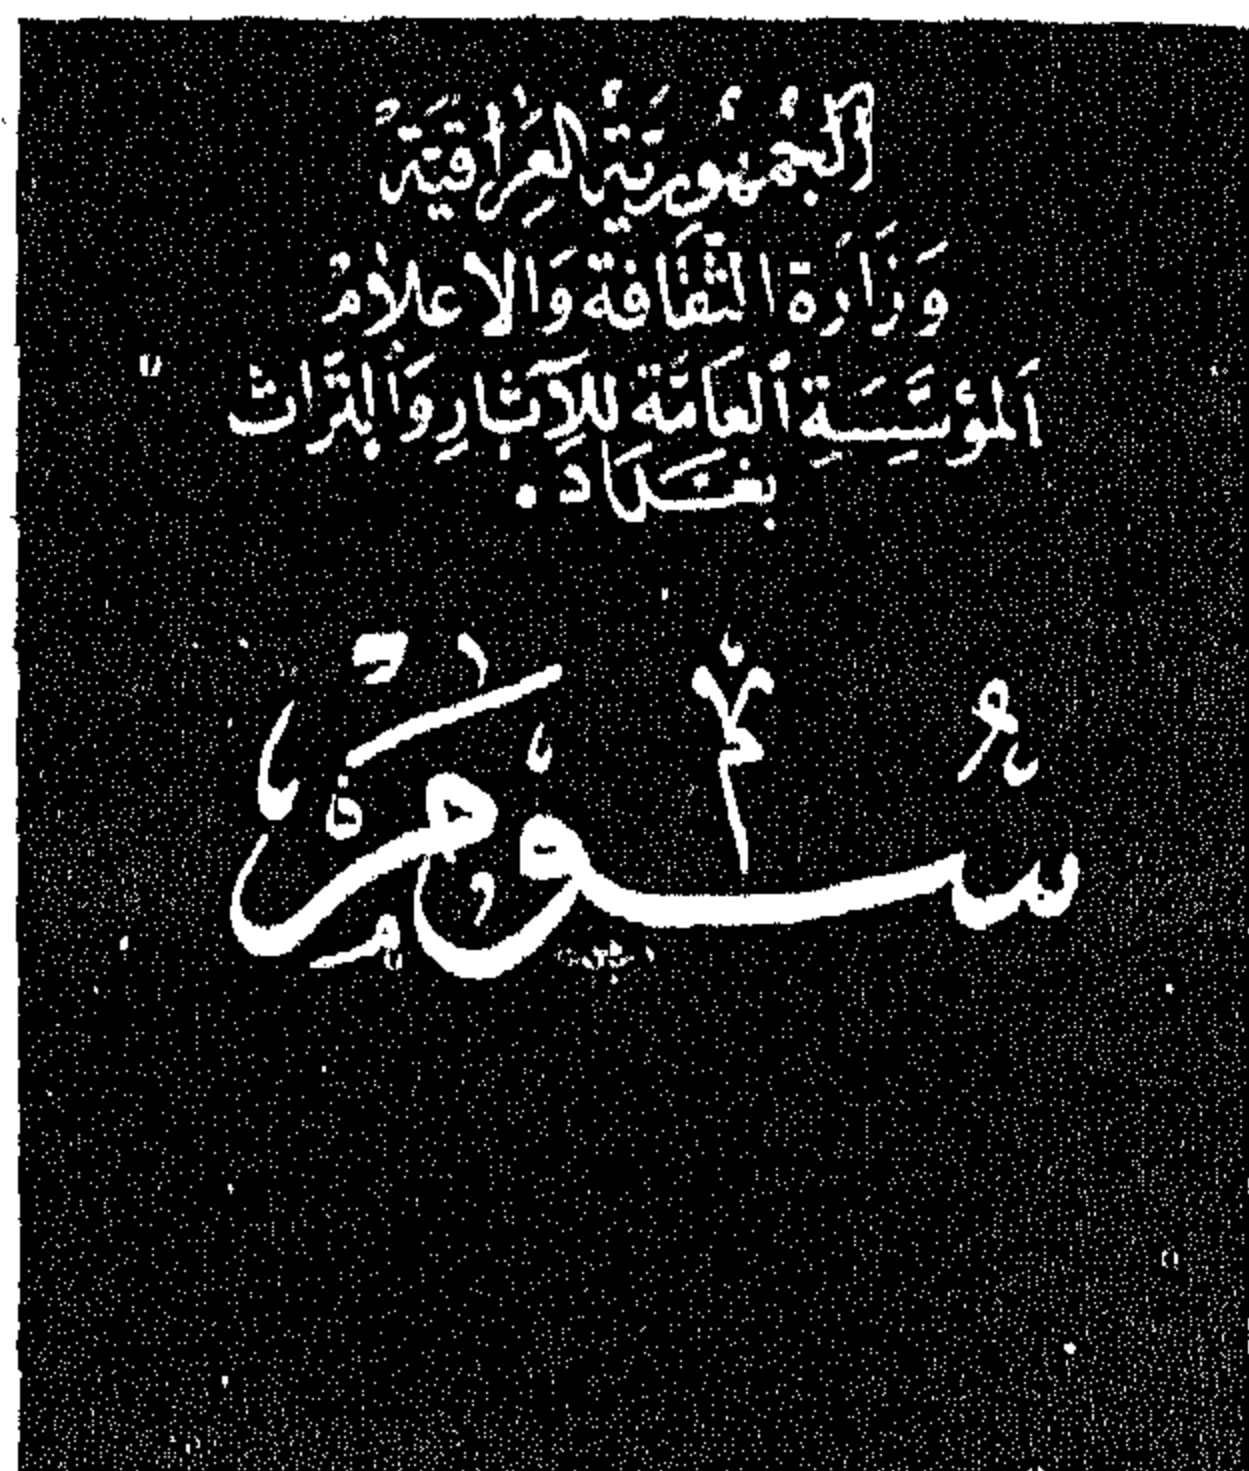 الجُمْهُورِيَّةُ العِرَاقِيَّةُ
وَزَارَة الثَّقَافَة وَالاعلَامُ
اَلمؤسَّسَةِ اَلعَامَّة لِلآثَارِ وَالتُّرَاث
بَغْدَاد.
سُومَر